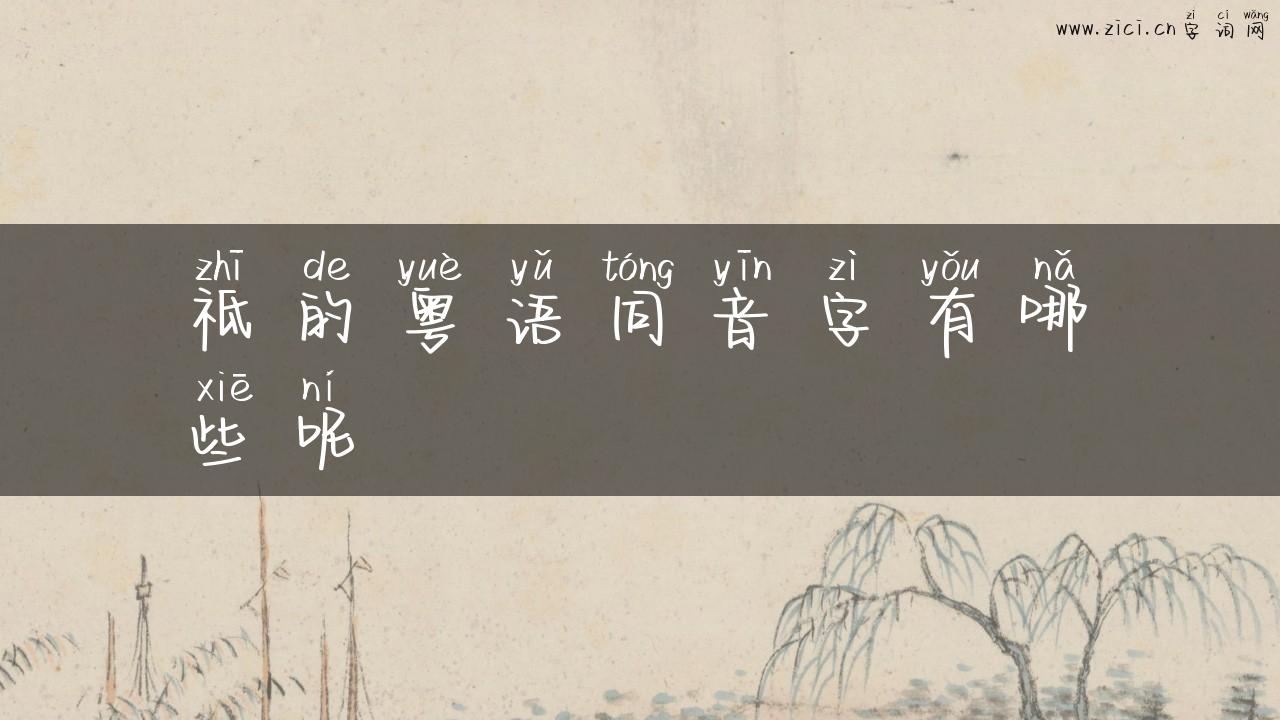 zì cí wǎng
www.zici.cn 字词网
zhī de yuè yǔ tóng yīn zì yǒu nǎ
祗的粤语同音字有哪
xiē ní
些呢